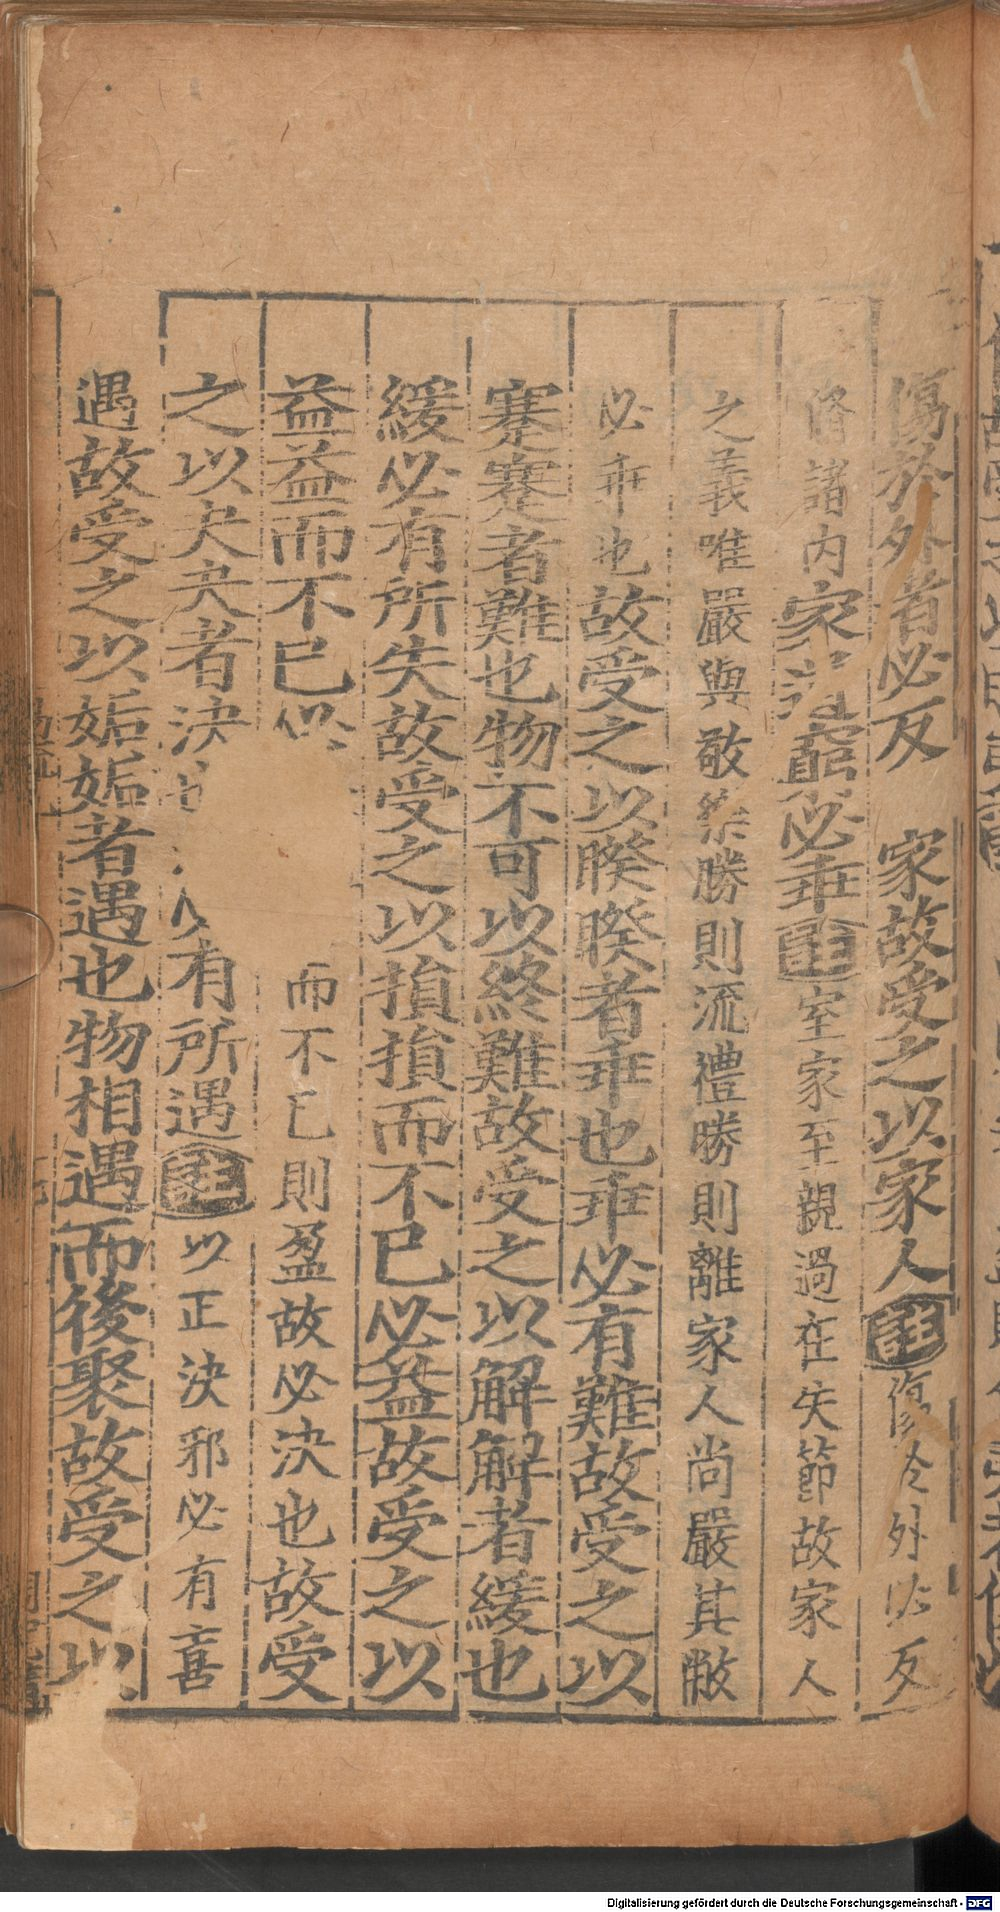 傷於外者必反 家故受之以家人註傷於外必反
脩諸內家道窮必乖註室家至親過在失節故家人
之義唯嚴與敬樂勝則流禮勝則離家人尚嚴其敝
必乖也故受之以睽睽者乖也乖必有難故受之以
蹇蹇者難也物不可以終難故受之以解解者緩也
緩必有所失故受之以損損而不已必益故受之以
益益而不已必 而不已則盈故必決也故受
之以夬夬者決也 必有所遇註以正決邪必有喜
遇故受之以姤姤者遇也物相遇而後聚故受之以
Digitalisierung gefördert durch die Deutsche Forschungsgemeinschaft - DFG